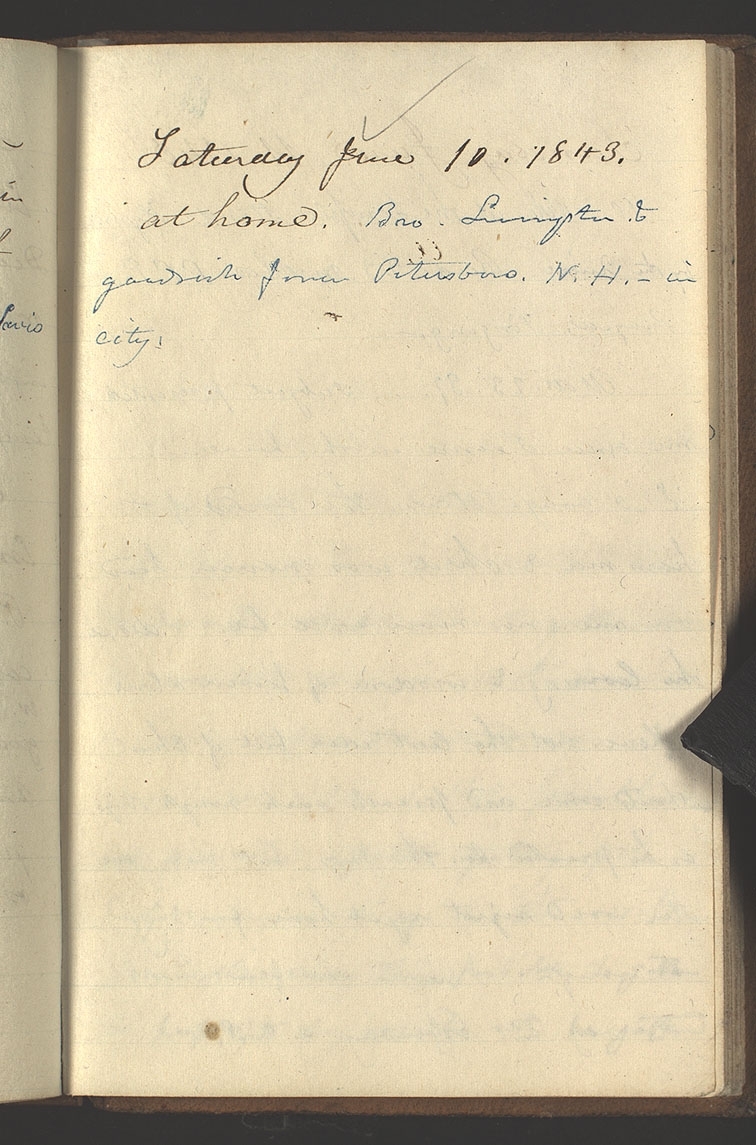 Saturday June 10. 1843.
at home. Bro. Livingston &
goodrich from Petersboro. N. H. - in
city.